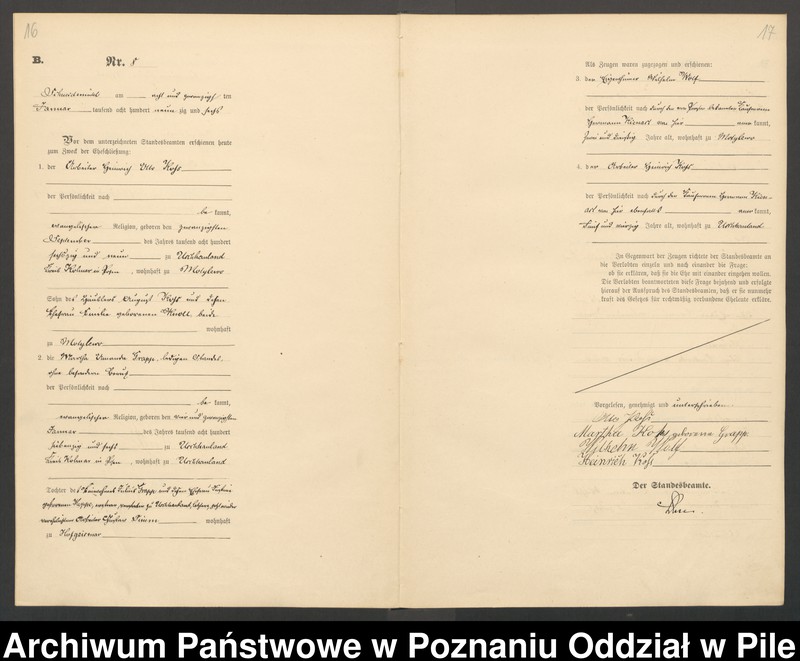 16
B. Nr. 8
Schneidemühl am acht und zwanzigsten
Januar tausend acht hundert neunzig und sechs
Vor dem unterzeichneten Standesbeamten erschienen heute
zum Zweck der Eheschließung:
1. der Arbeiter Heinrich Otto Kohs
der Persönlichkeit nach
be kannt,
evangelischer Religion, geboren den zwanzigsten
September des Jahres tausend acht hundert
sechszig und neun zu Usch Neuland
Kreis Kolmar in Posen, wohnhaft zu Motylewo
Sohn des Häuslers August Kohs und dessen
Ehefrau Emilie geborenen Knoll, beide
wohnhaft
zu Motylewo
2. die Martha Amanda Grapp, ledigen Standes,
ohne besonderen Beruf
der Persönlichkeit nach
be kannt,
evangelischer Religion, geboren den vier und zwanzigsten
Januar des Jahres tausend acht hundert
siebenzig und sechs zu Usch Neuland
Kreis Kolmar in Posen, wohnhaft zu Usch Neuland
Tochter des Grapp und dessen Ehefrau
geborenen zu Usch Neuland,
Arbeiter wohnhaft
zu Hofgeismar
17
Als Zeugen waren zugezogen und erschienen:
3. der Eigenthümer Wilhelm Wolf
der Persönlichkeit nach durch den von Person bekannten Kaufmann
Hermann von hier aner kannt,
zwei und Jahre alt, wohnhaft zu Motylewo
4. der Arbeiter Heinrich Kohs
der Persönlichkeit nach durch den Kaufmann Hermann
von hier ebenfalls aner kannt,
fünf und vierzig Jahre alt, wohnhaft zu Usch Neuland
In Gegenwart der Zeugen richtete der Standesbeamte an
die Verlobten einzeln und nach einander die Frage:
ob sie erklären, daß sie die Ehe mit einander eingehen wollen.
Die Verlobten beantworteten diese Frage bejahend und erfolgte
hierauf der Ausspruch des Standesbeamten, daß er sie nunmehr
kraft des Gesetzes für rechtmäßig verbundene Eheleute erkläre.
Vorgelesen, genehmigt und unterschrieben
Otto Kohs
Martha Kohs geborene Grapp
Wilhelm Wolf
Heinrich Kohs
Der Standesbeamte.
Archiwum Państwowe w Poznaniu Oddział w Pile